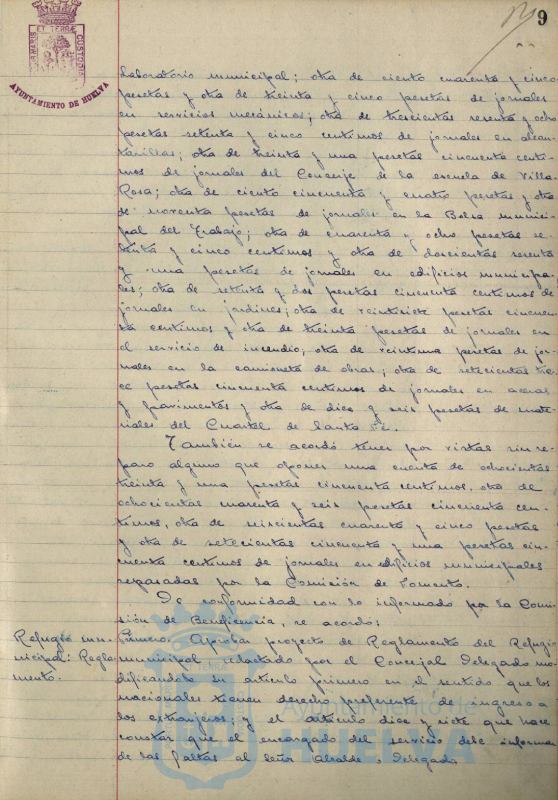 9
PORTUS MARIS ET TERRAE CUSTODIA
AYUNTAMIENTO DE HUELVA
Laboratorio municipal; otra de ciento cuarenta y cinco
pesetas y otra de treinta y cinco pesetas de jornales
en servicios mecánicos; otra de trescientas sesenta y ocho
pesetas setenta y cinco centimos de jornales en alcan-
tarillas; otra de treinta y una pesetas cincuenta centi-
mos de jornales del Conserje de la escuela de Villa
Rosa; otra de ciento cincuenta y cuatro pesetas y otra
de noventa pesetas de jornales en la Bolsa munici-
pal del Trabajo; otra de cuarenta y ocho pesetas se-
tenta y cinco centimos y otra de doscientas sesenta
y una pesetas de jornales en edificios municipa-
les; otra de setenta y dos pesetas cincuenta centimos de
jornales en jardines; otra de veintisiete pesetas cincuen-
ta centimos y otra de treinta pesetas de jornales en
el servicio de incendio; otra de veintiuna pesetas de jor-
nales en la camioneta de obras; otra de setecientas tre-
ce pesetas cincuenta centimos de jornales en aceras
y pavimentos y otra de diez y seis pesetas de mate-
riales del Cuartel de Santa Fé.
También se acordó tener por vistas sin re-
paro alguno que oponer una cuenta de ochocientas
treinta y una pesetas cincuenta centimos, otra de
ochocientas cuarenta y seis pesetas cincuenta cen-
timos, otra de seiscientas cuarenta y cinco pesetas
y otra de setecientas cincuenta y una pesetas cin-
cuenta centimos de jornales en edificios municipales
reparadas por la Comisión de Fomento.
De conformidad con lo informado por la Comi-
sión de Beneficencia, se acordó:
Refugio mu-
nicipal: Regla-
mento.
Primero. Aprobar proyecto de Reglamento del Refugio
municipal redactado por el Concejal Delegado mo-
dificandolo su articulo primero en el sentido que los
nacionales tienen derecho preferente de ingreso a
los extranjeros; y el articulo diez y siete que hace
constar que el encargado del servicio debe informar
de las faltas al Señor Alcalde o Delegado
Ayuntamiento de
HUELVA